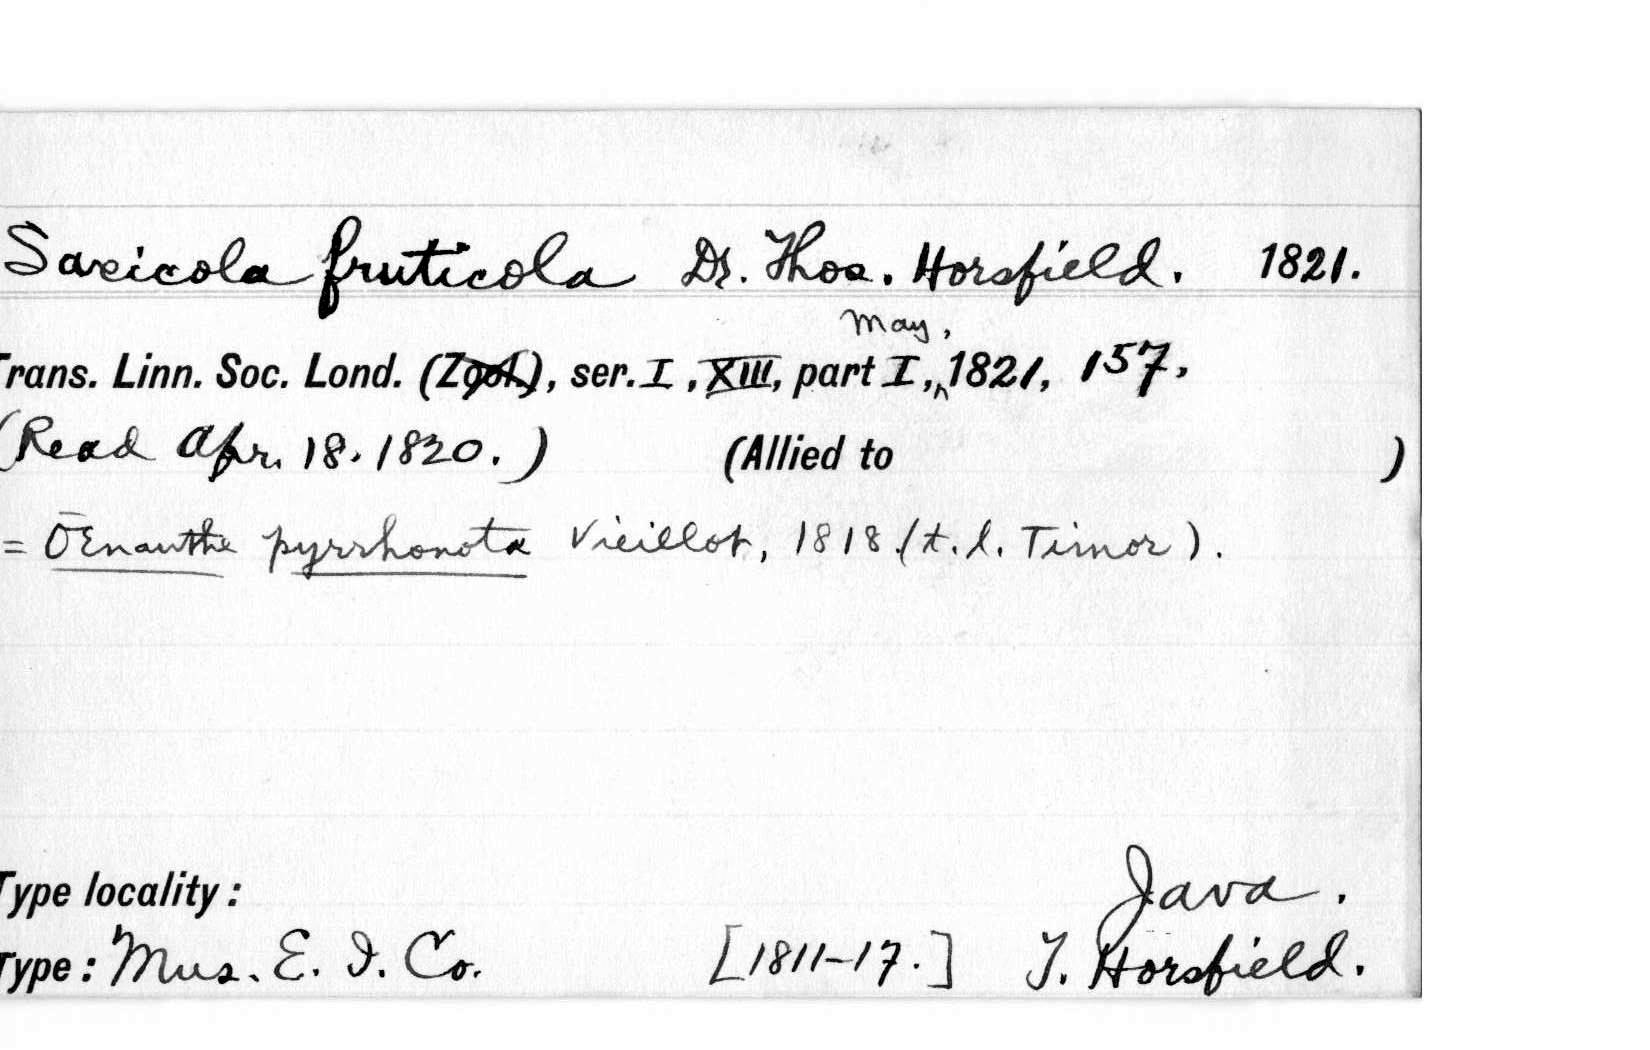 Saxicola fruticola Dr. Thos. Horsfield. 1821.
May,
Trans. Linn. Soc. Lond. (Zool.), ser. I, XIII, part I, 1821, 157,
(Read Apr. 18. 1820.) (Allied to )
= Œnanthe pyrrhonota Vieillot, 1818 (t. l. Timor).
Type locality: Java.
Type: Mus. E. I. Co. [1811-17.] T. Horsfield.